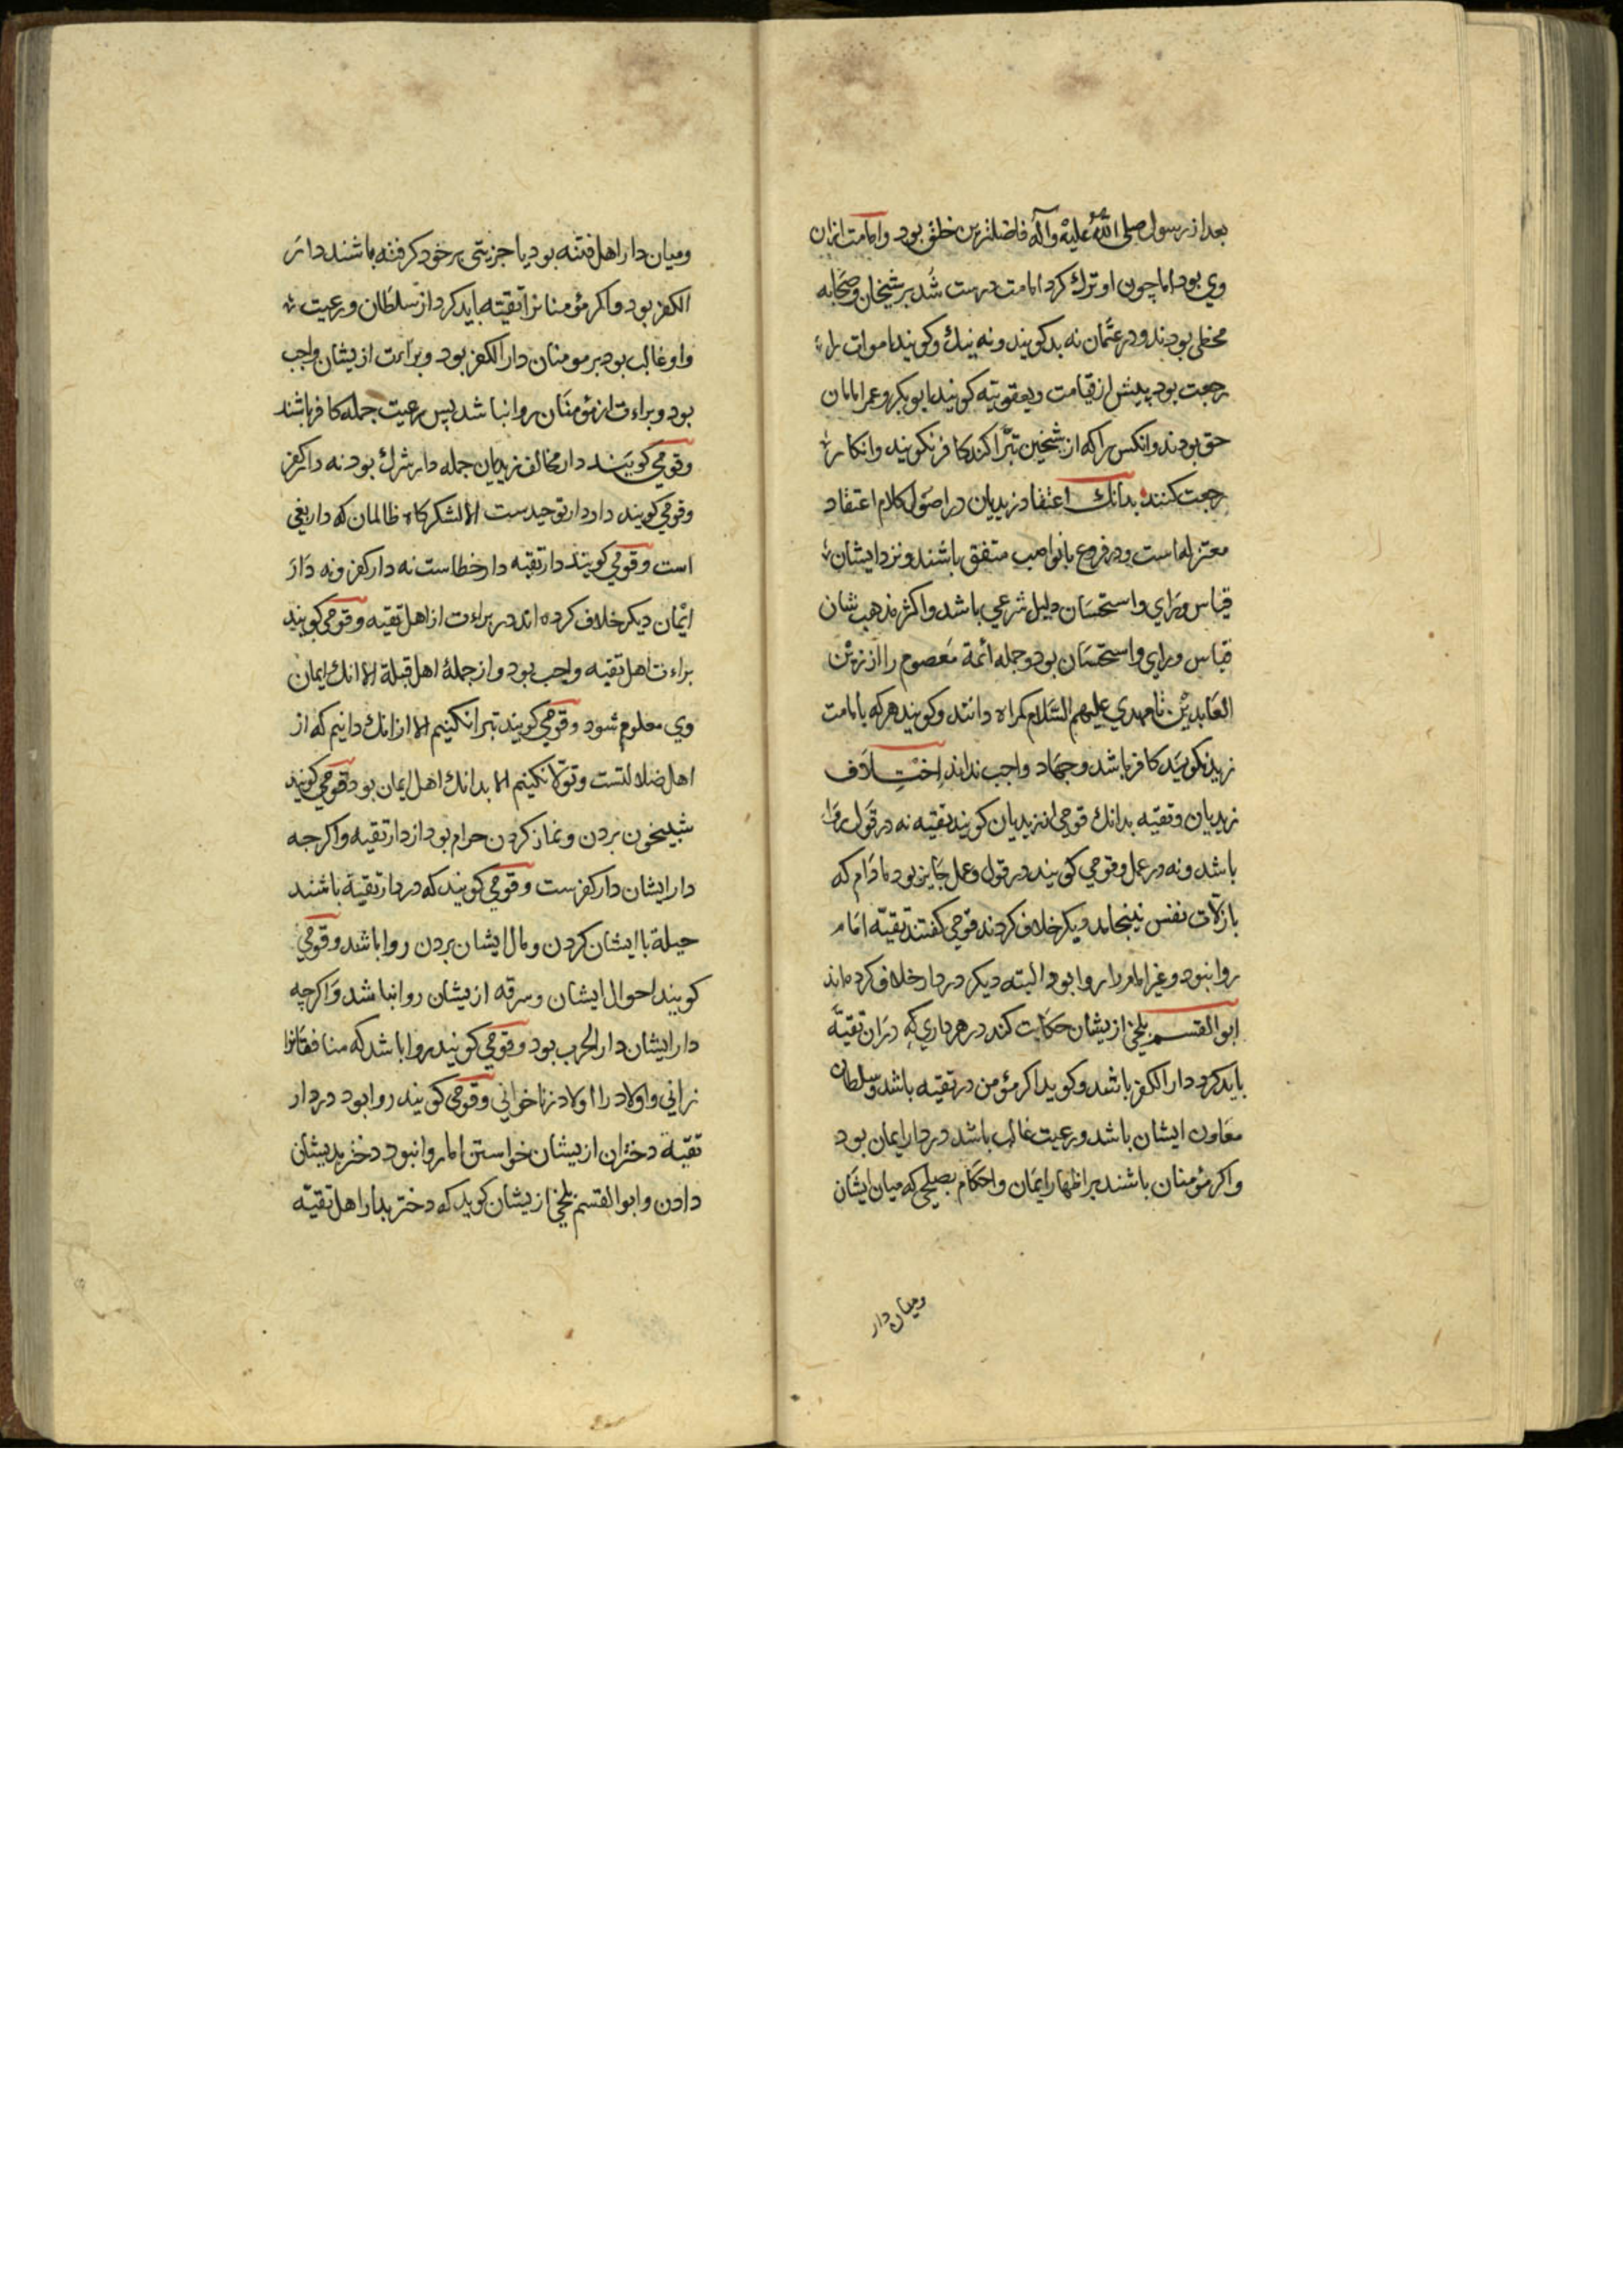 بعد از رسول صلی الله علیه وآله فاضلترین خلق بود وامامت ازان
وی بود اما چون او ترک کرد امامت درست شد بر شیخان وصحابه
مخطی بودند ودر عثمان نه بد کویند ونه نیک وکویند اموات را
رجعت بود پیش از قیامت ویعقوبیه کویند ابوبکر وعمر امامان
حق بودند وانکس را که از شیخین تبرا کند کافر نکویند وانکار
رجعت کنند بدانک اعتقاد زیدیان در اصول کلام اعتقاد
معتزله است ودر فروع با نواصب متفق باشند ونزد ایشان
قیاس ورای واستحسان دلیل شرعی باشد واکثر مذهب شان
قیاس ورای واستحسان بود وجمله ائمة معصوم را از زین
العابدین تا مهدی علیهم السلام کمراه دانند وکویند هرکه بامامت
زید نکویند کافر باشد وجهاد واجب نداند اختلاف
زیدیان وتقیه بدانک قومی از زیدیان کویند تقیه نه در قول روا
باشد ونه در عمل وقومی کویند در قول وعمل جایز بود مادام که
با زلات نفس نینجامد دیکر خلاف کردند قومی کفتند تقیه امام
روا نبود وغیر امام را روا بود البته دیکر در دار خلاف کرده اند
ابوالقسم بلخی ازیشان حکایت کند در هر داری که دران تقیه
باید کرد دار الکفر باشد وکوید اکر مؤمن در تقیه باشد وسلطان
معاون ایشان باشد ورعیت غالب باشد در دار ایمان بود
واکر مؤمنان باشند بر اظهار ایمان واحکام بصلحی که میان ایشان
ومیان دار
ومیان دار اهل فتنه بود یا جزیتی بر خود کرفته باشند دار
الکفر بود واکر مؤمنانرا تقیه باید کرد از سلطان ورعیت
واو غالب بود بر مومنان دار الکفر بود وبراءت ازیشان واجب
بود وبراءت از مؤمنان روا نباشد پس رعیت جمله کافر باشند
وقومی کویند دار مخالف زیدیان جمله دار شرک بود نه دار کفر
وقومی کویند دار دار توحیدست الا لشکرکاه ظالمان که دار بغی
است وقومی کویند دار تقیه دار خطاست نه دار کفر ونه دار
ایمان دیکر خلاف کرده اند در براءت از اهل تقیه وقومی کویند
براءت اهل تقیه واجب بود واز جملة اهل قبلة الا انک ایمان
وی معلوم شود وقومی کویند تبرا نکنیم الا از انک دانیم که از
اهل ضلالتست وتولا نکنیم الا بدانک اهل ایمان بود وقومی کویند
شبیخون بردن ونماز کردن حرام بود از دار تقیه واکرچه
دار ایشان دار کفرست وقومی کویند که در دار تقیه باشند
حیلة با ایشان کردن ومال ایشان بردن روا باشد وقومی
کویند احوال ایشان وسرقه ازیشان روا نباشد واکرچه
دار ایشان دار الحرب بود وقومی کویند روا باشد که منافقانرا
زانی واولاد را اولاد زنا خوانی وقومی کویند روا بود در دار
تقیة دختران ازیشان خواستن اما روا نبود دختر بدیشان
دادن وابوالقسم بلخی ازیشان کوید که دختر بدار اهل تقیه